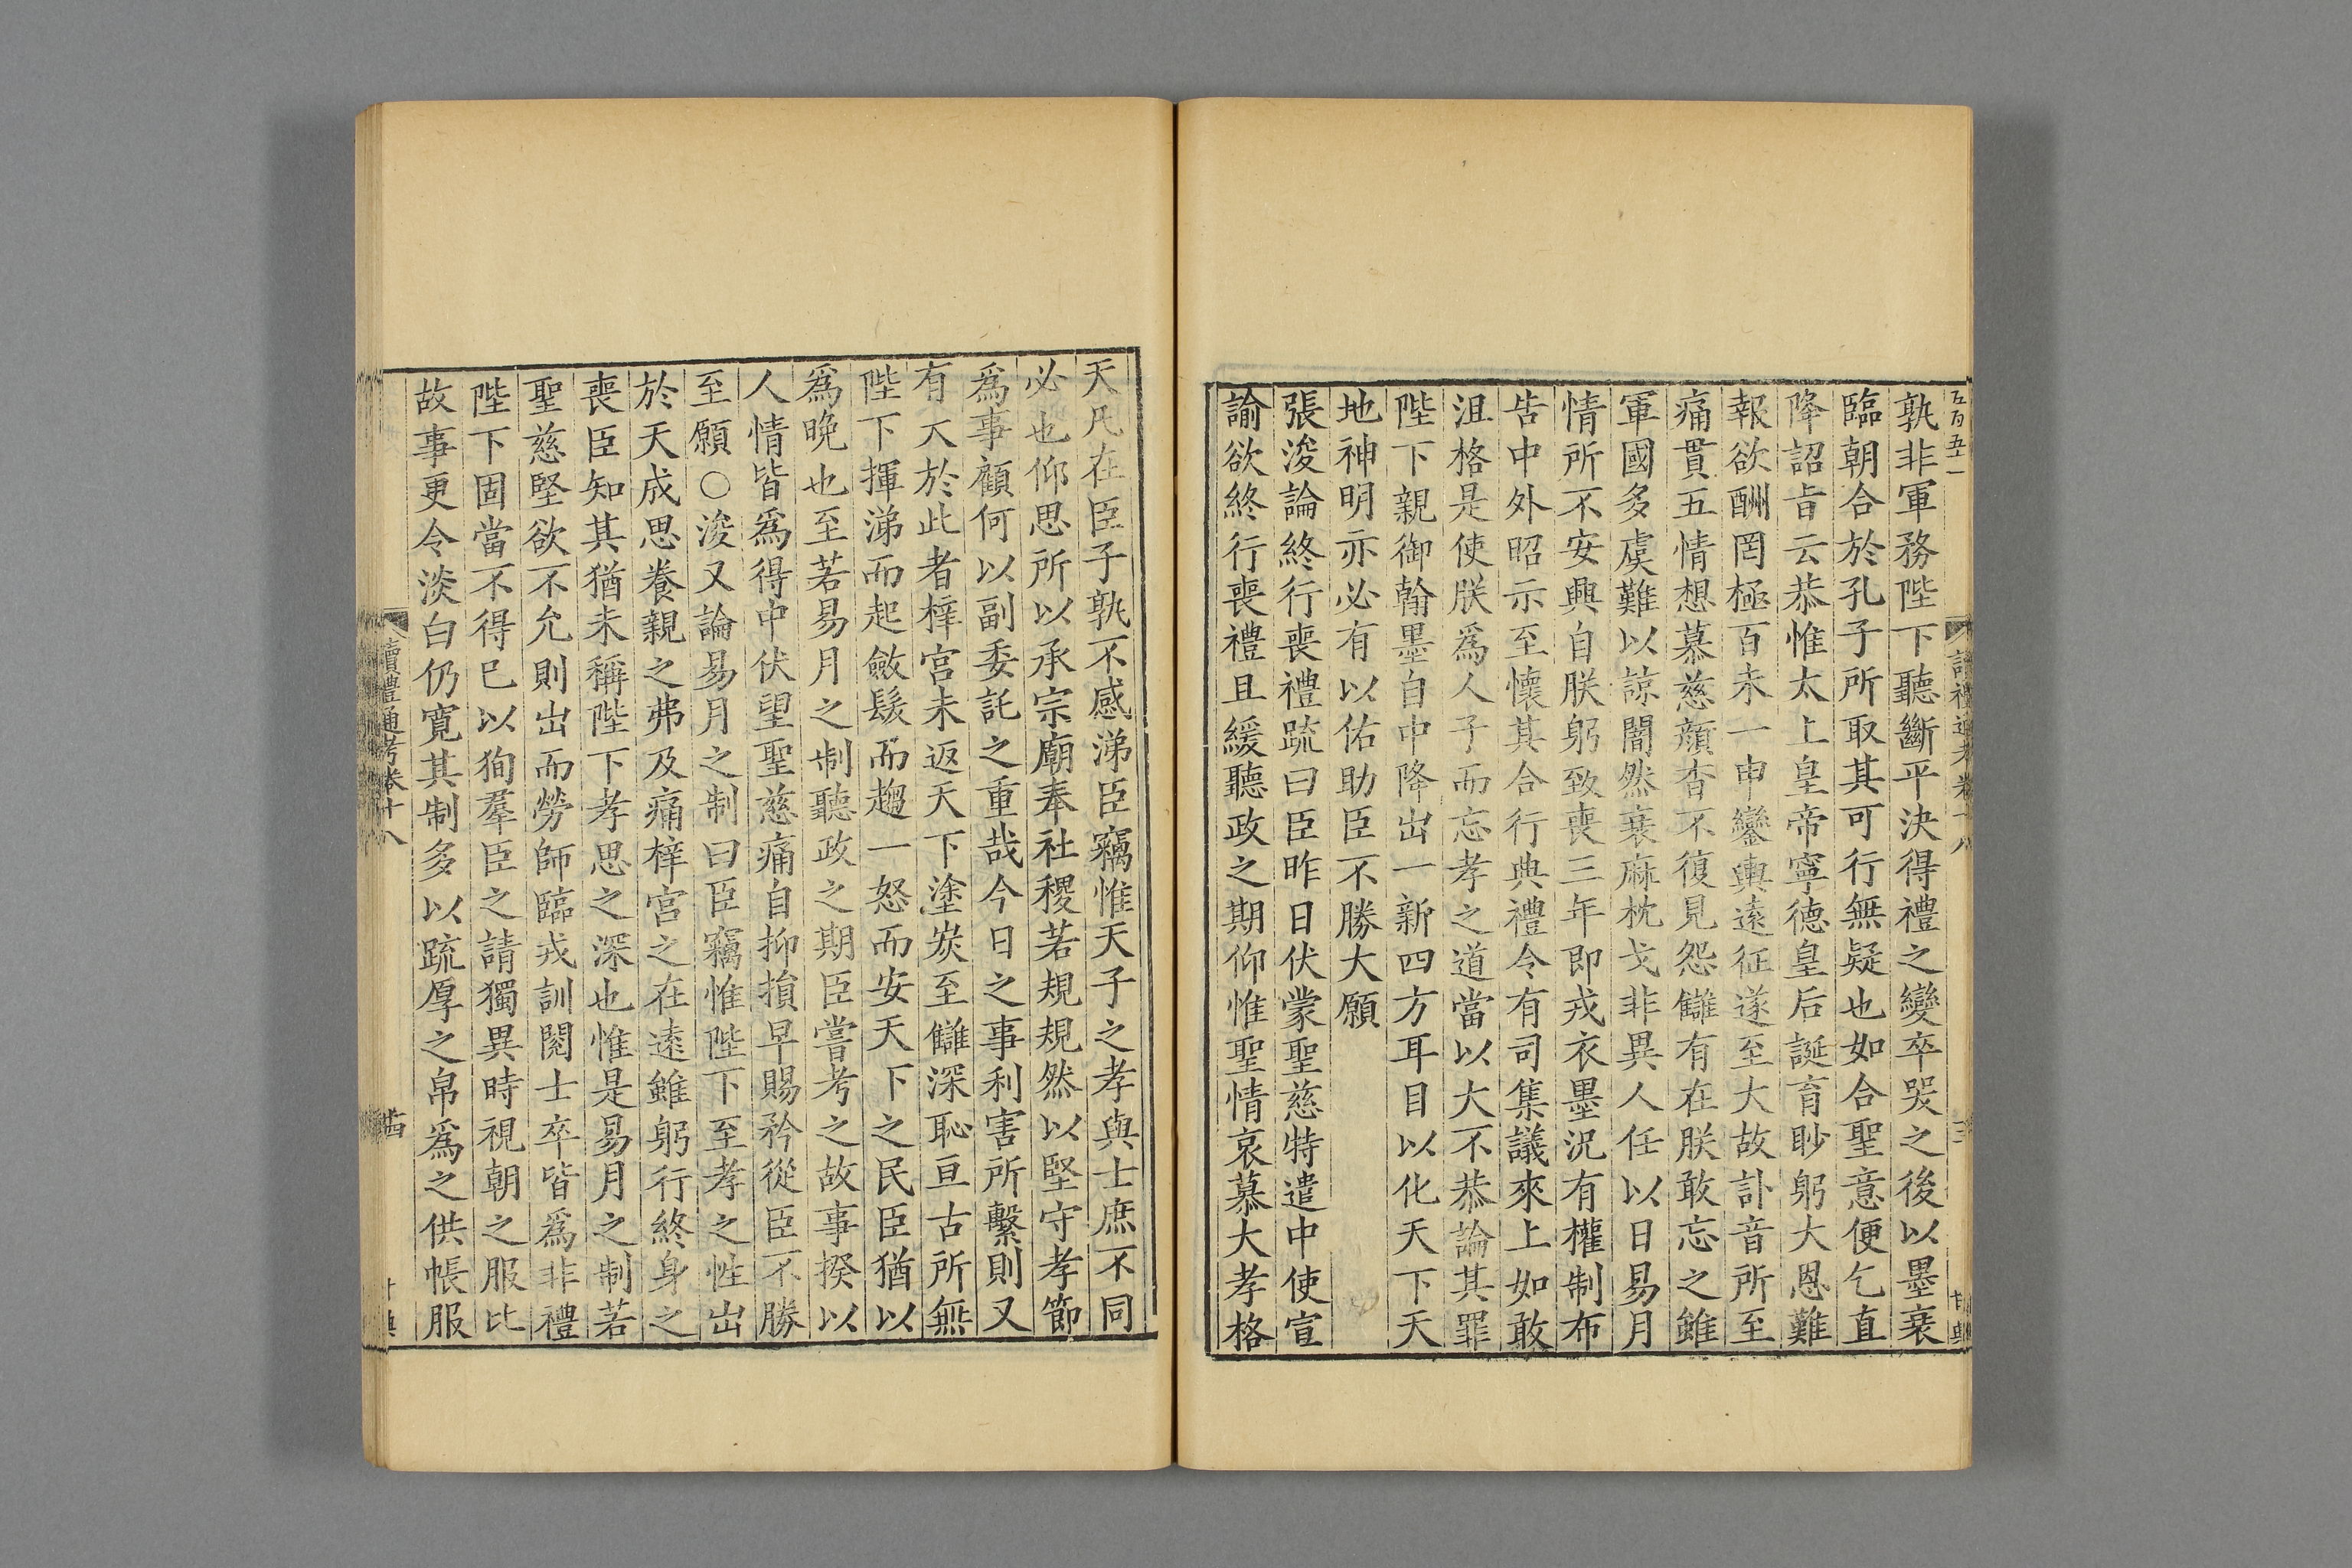 五百五一
讀禮通考卷十八
孰非軍務陛下聽斷平決得禮之變卒哭之後以墨衰
臨朝合於孔子所取其可行無疑也如合聖意便乞直
降詔旨云恭惟太上皇帝寧德皇后誕育眇躬大恩難
報欲酬罔極百未一申鑾輿遠征遂至大故訃音所至
痛貫五情想慕慈顏杳不復見怨讎有在朕敢忘之雖
軍國多虞難以諒闇然衰麻枕戈非異人任以日易月
情所不安興自朕躬致喪三年即戎衣墨況有權制布
告中外昭示至懷其合行典禮令有司集議來上如敢
沮格是使朕爲人子而忘孝之道當以大不恭論其罪
陛下親御翰墨自中降出一新四方耳目以化天下天
地神明亦必有以佑助臣不勝大願
張浚論終行喪禮疏曰臣昨日伏蒙聖慈特遣中使宣
諭欲終行喪禮且緩聽政之期仰惟聖情哀慕大孝格
天凡在臣子孰不感涕臣竊惟天子之孝與士庶不同
必也仰思所以承宗廟奉社稷若規規然以堅守孝節
爲事顧何以副委託之重哉今日之事利害所繫則又
有大於此者梓宮未返天下塗炭至讎深恥亘古所無
陛下揮涕而起斂髮而趨一怒而安天下之民臣猶以
爲晚也至若易月之制聽政之期臣嘗考之故事揆以
人情皆爲得中伏望聖慈痛自抑損早賜矜從臣不勝
至願○浚又論易月之制曰臣竊惟陛下至孝之性出
於天成思養親之弗及痛梓宮之在遠雖躬行終身之
喪臣知其猶未稱陛下孝思之深也惟是易月之制若
聖慈堅欲不允則出而勞師臨戎訓閱士卒皆爲非禮
陛下固當不得已以狥羣臣之請獨異時視朝之服比
故事更令淡白仍寬其制多以疏厚之帛爲之供帳服
讀禮通考卷十八